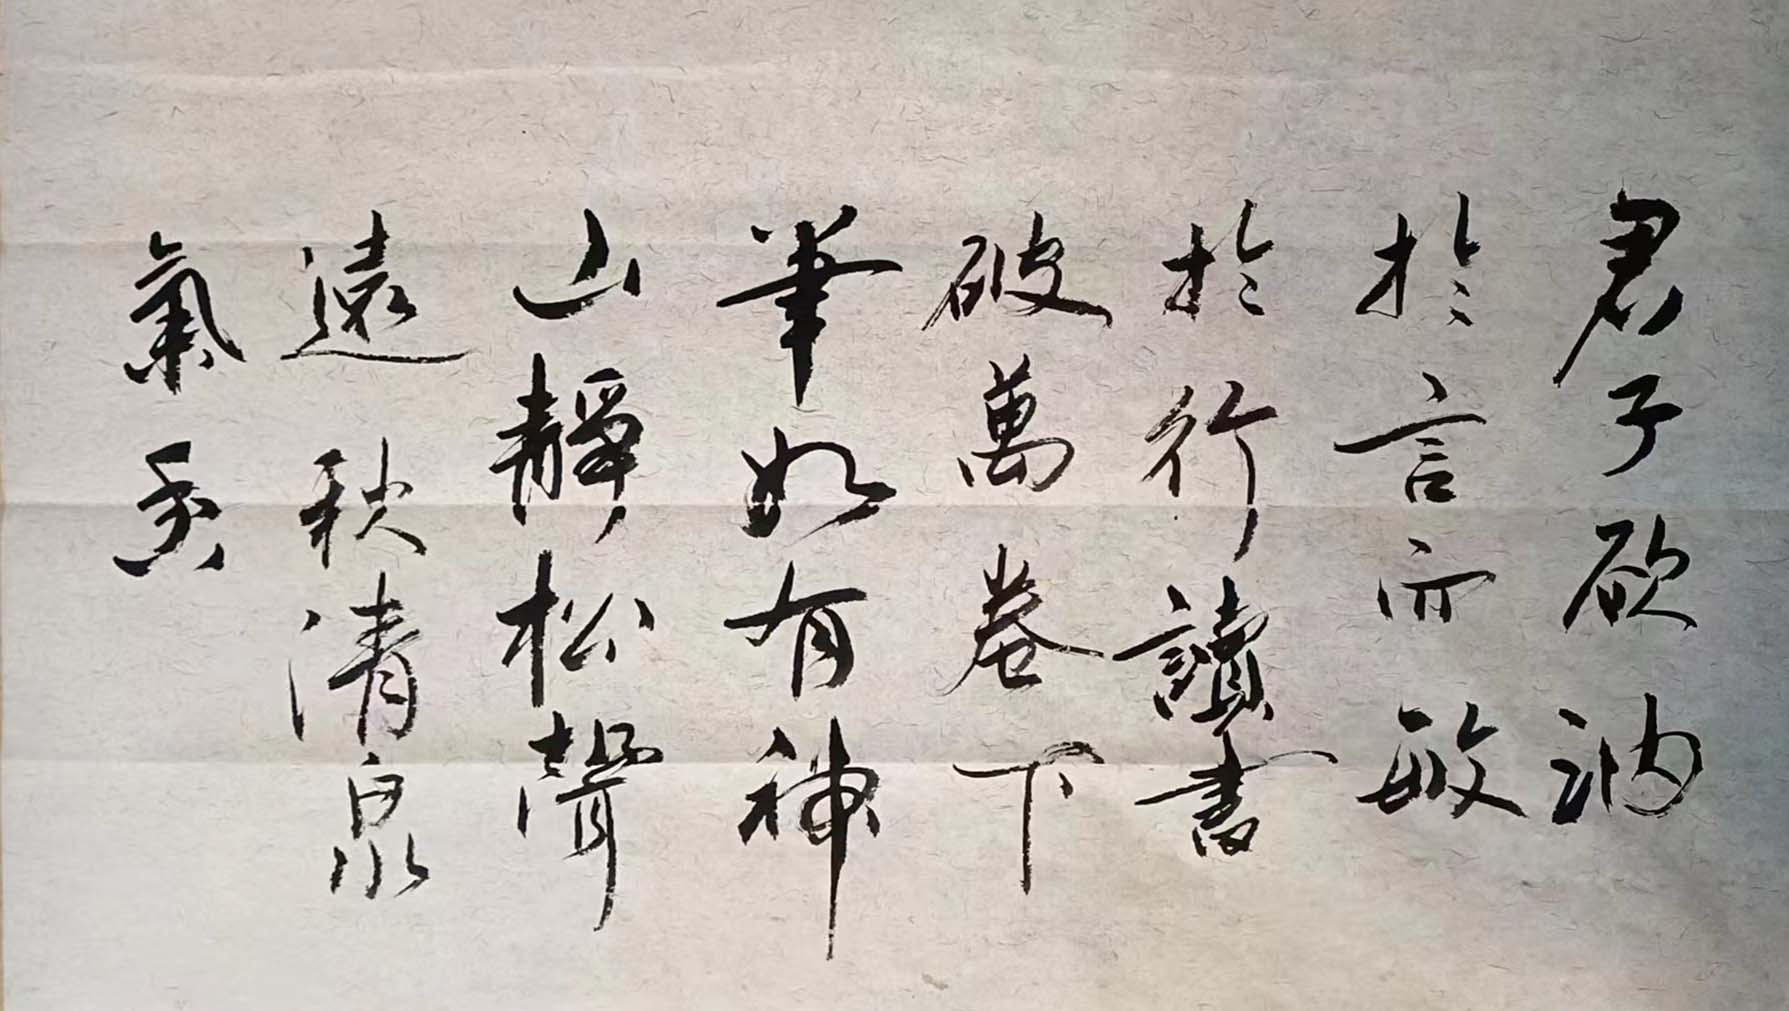 君子欲訥
於言而敏
於行讀書
破萬卷下
筆如有神
山靜松聲
遠秋清泉
氣香